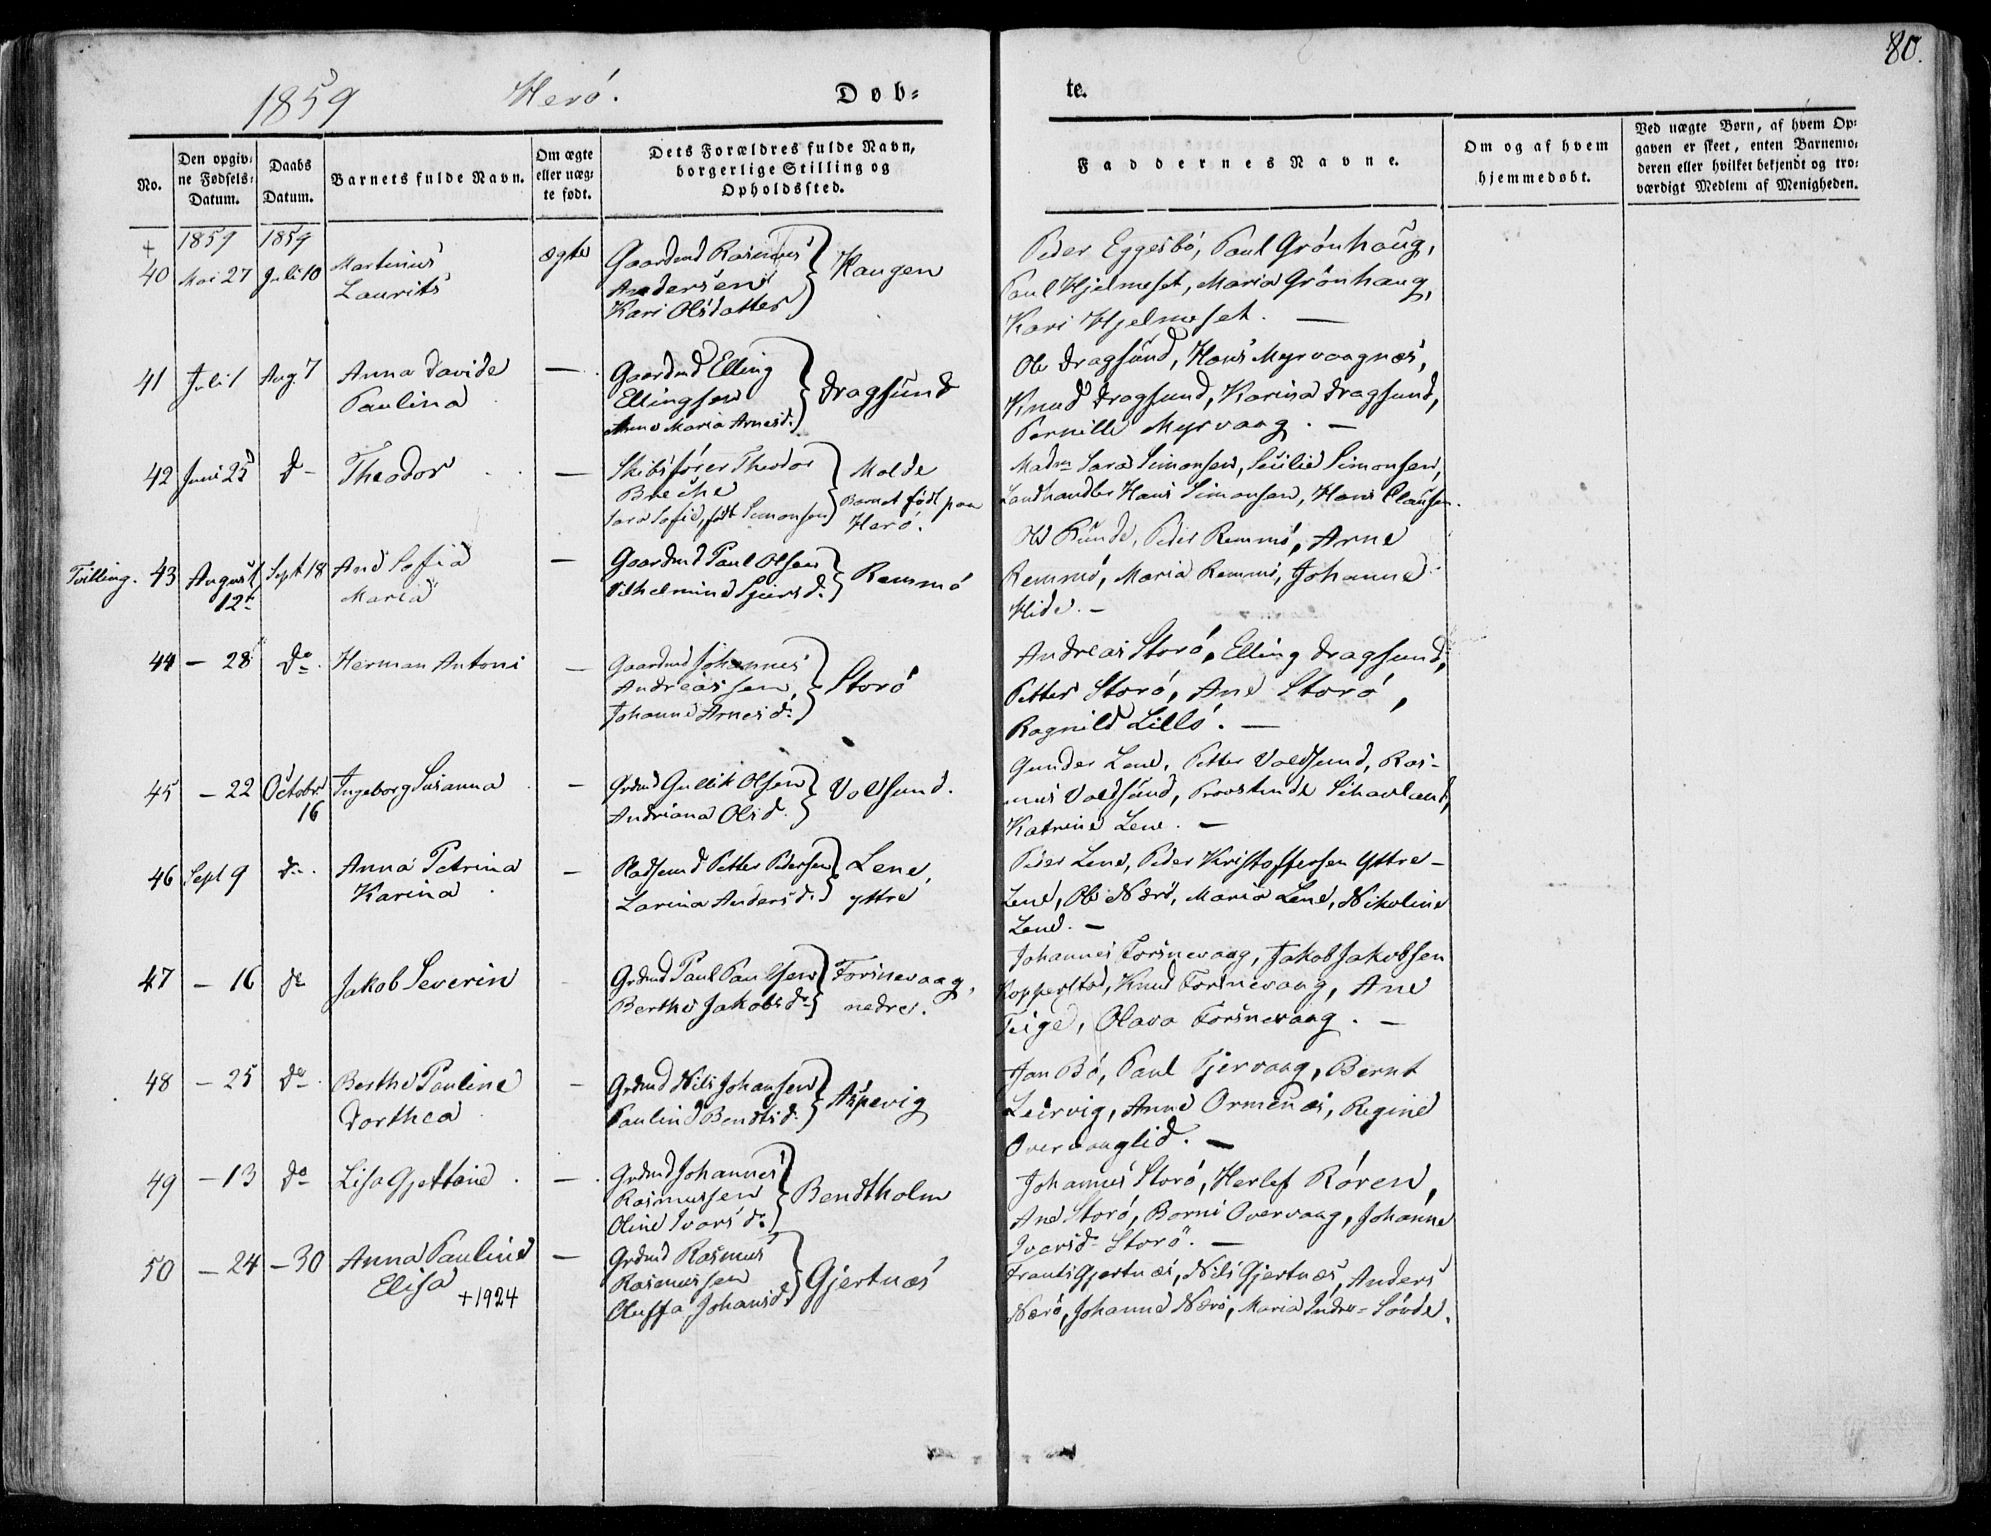 80.
1859 Herö. Døb-
te.
No.
Den opgiv-
ne Fødsels-
Datum.
Daabs
Datum.
Barnets fulde Navn.
Om ægte
eller uæg-
te født.
Dets Forældres fulde Navn,
borgerlige Stilling og
Opholdssted.
Faddernes Navne.
Om og af hvem
hjemmedøbt.
Ved uægte Børn, af hvem Op-
gaven er skeet, enten Barnemo-
deren eller hvilket bekjendt og tro-
værdigt Medlem af Menigheden.
+ 1859 1859
40 Mai 27 Juli 10 Martinus
Laurits
ægte
Gaardmd Rasmus
Andersen
Kari Olsdatter
Haugen
Peder Eggesbö, Paul Grönhaug,
Paul Hjelmeset, Maria Grönhaug,
Kari Hjelmeset. —
41 Juli 1 Aug 7 Anna Davide
Paulina
—
Gaardmd Elling
Ellingsen
Anne Maria Arnesd.
Dragsund
Ole Dragsund, Hans Myrvaagnæs,
Knud Dragsund, Karina Dragsund,
Pernille Myrvaag. —
42 Juni 25 d— Theodor
—
Skibsförer Theodor
Sara Sofie, født Simonsen
Molde
Barnet født paa
Herö.
Madm Sara Simonsen, Secilie Simonsen,
Landhandler Hans Simonsen, Hans Clausen.
Tvilling. 43 August
12te
Sept 18 Ane Sofia
Maria
—
Gaardmd Paul Olsen
Vilhelmine Sjursd.
Remmö
Ole Runde, Peder Remmö, Arne
Remmö, Maria Remmö, Johanne
Hide. —
44 — 28 do Herman Antoni
—
Gaardmd Johannes
Andreassen,
Johanne Arnesd.
Storö
Andreas Storö, Elling Dragsund,
Petter Storö, Ane Storö,
Ragnild Lillö. —
45 — 22 Octobr
16
Ingeborg Susanna
—
Grdmd Gullik Olsen
Andriana Olsd.
Voldsund.
Gunder Lene, Petter Voldsund, Ras-
mus Voldsund, Provstinde Schavland,
Katrine Lene. —
46 Sept 9 do. Anna Petrina
Karina
—
Pladsmd Petter Pedersen
Larina Andersd.
Lene,
yttre
Peder Lene, Peder Kristoffersen Yttre-
Lene, Ole Nærö, Maria Lene, Nikoline
Lene. —
47 — 16 do Jakob Severin
Grdmd Paul Paulsen
Berthe Jakobsd.
Torsnevaag,
nedre.
Johannes Torsnevaag, Jakob Jakobsen
Kopperstad, Knud Torsnevaag, Ane
Teige, Olava Torsnevaag. —
48 — 25 do Berthe Pauline
Dorthea
—
Grdmd Nils Johansen
Pauline Bendtsd.
Aspevig
Jan Bö, Paul Tjervaag, Bernt
Leirvig, Anne Ormenæs, Regine
Overvaaglid. —
49 — 13 do Lisa Gjettine
—
Grdmd Johannes
Rasmussen
Oline Ivarsd.
Bendtholm
Johannes Storö, Herlef Rören,
Ane Storö, Borni Overvaag, Johanne
Ivarsd. Storö. —
50 — 24 — 30 Anna Pauline
Elisa
+ 1924
—
Grdmd Rasmus
Rasmussen
Oluffa Johansd.
Gjertnæs
Frants Gjertnæs, Nils Gjertnæs, Anders
Nærö, Johanne Nærö, Maria Indre-Sövde.